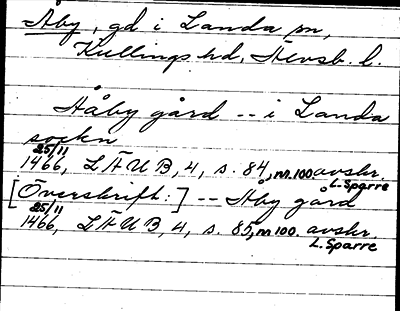 Åby, gd i Landa sn,
Kullings hd, Älvsb. l.
Håby gård -- i Landa
sockn
25/11
1466, LÄUB, 4, s. 84, m.100 avskr.
L. Sparre
[Överskrift:] -- Håby gård
25/11
1466, LÄUB, 4, s. 85, m 100. avskr.
L. Sparre